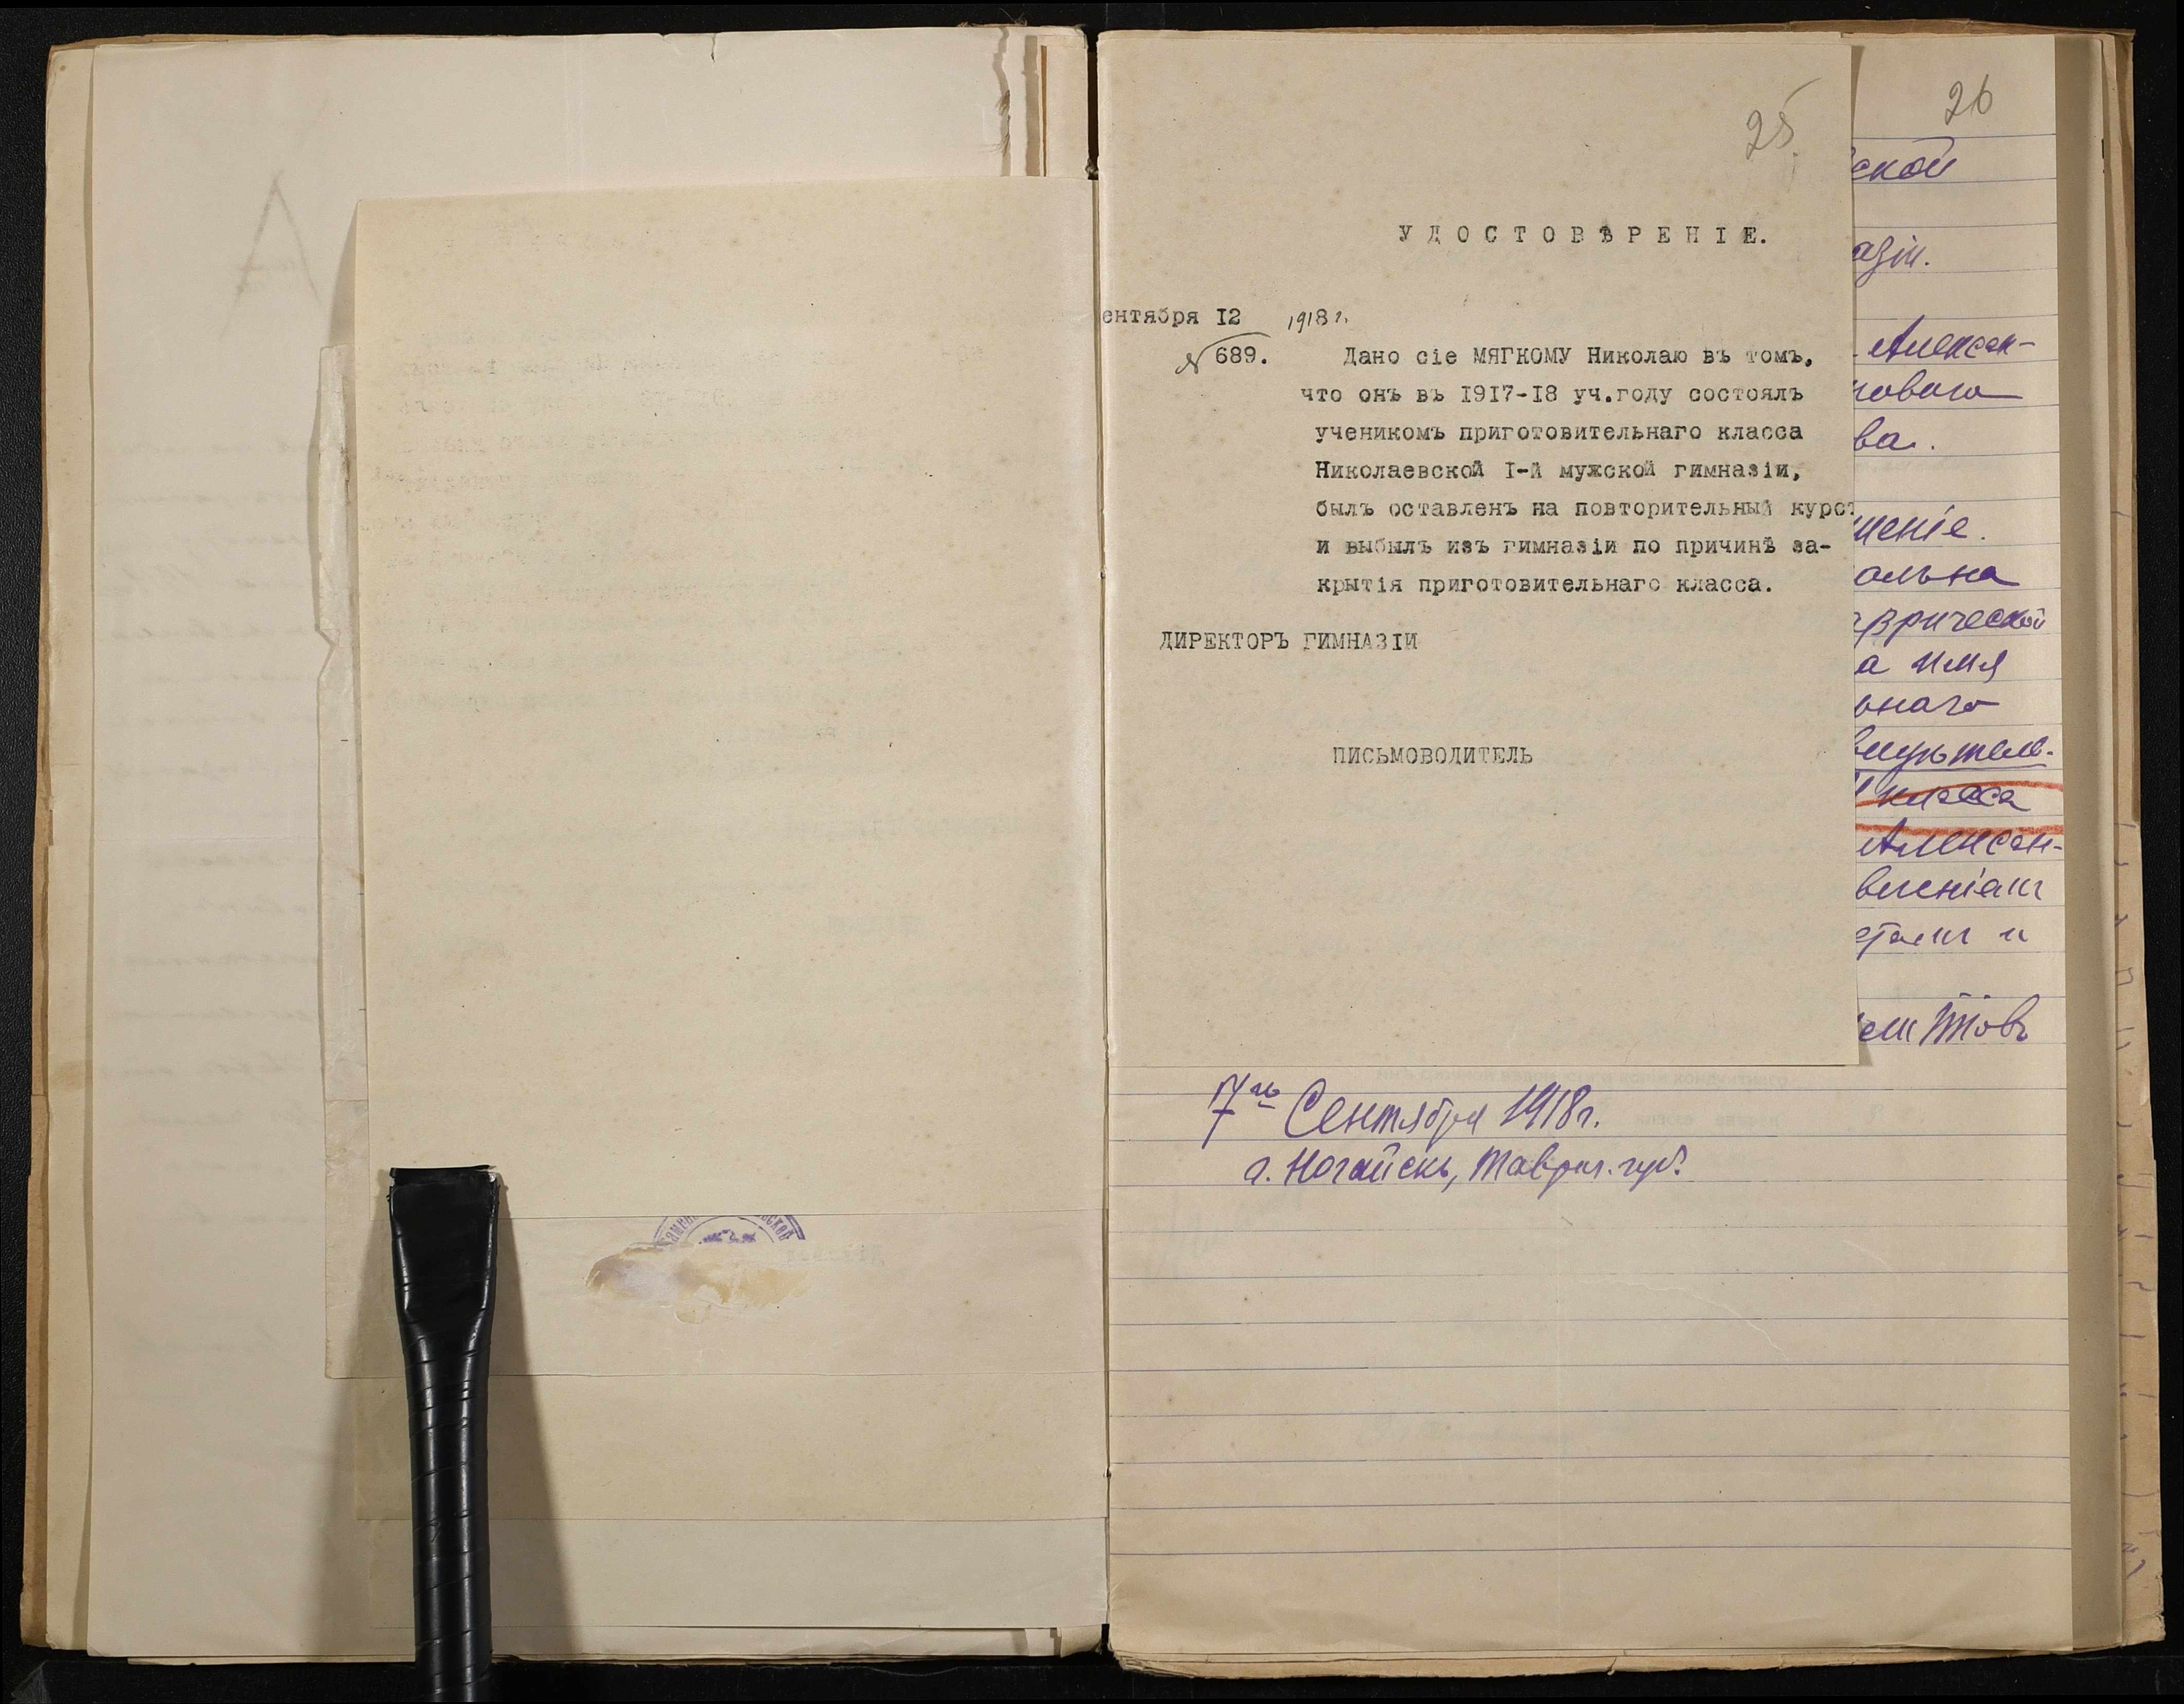 25
УДОСТОВѢРЕНІЕ.
ентября I2 1918 г.
№ 689.
Дано сіе МЯГКОМУ Николаю въ томъ,
что онъ въ I9I7-I8 уч.году состоялъ
ученикомъ приготовительнаго класса
Николаевской I-й мужской гимназіи,
былъ оставленъ на повторительный курс
и выбылъ изъ гимназіи по причинѣ за-
крытія приготовительнаго класса.
ДИРЕКТОРЪ ГИМНАЗІИ
ПИСЬМОВОДИТЕЛЬ
26
ской
азіи.
Алексан-
ва.
шеніе.
ольна
врической
а имя
наго
класса
Алексан-
и
7го Сентября 1918г.
г. Ногайскъ, Таврич. губ.